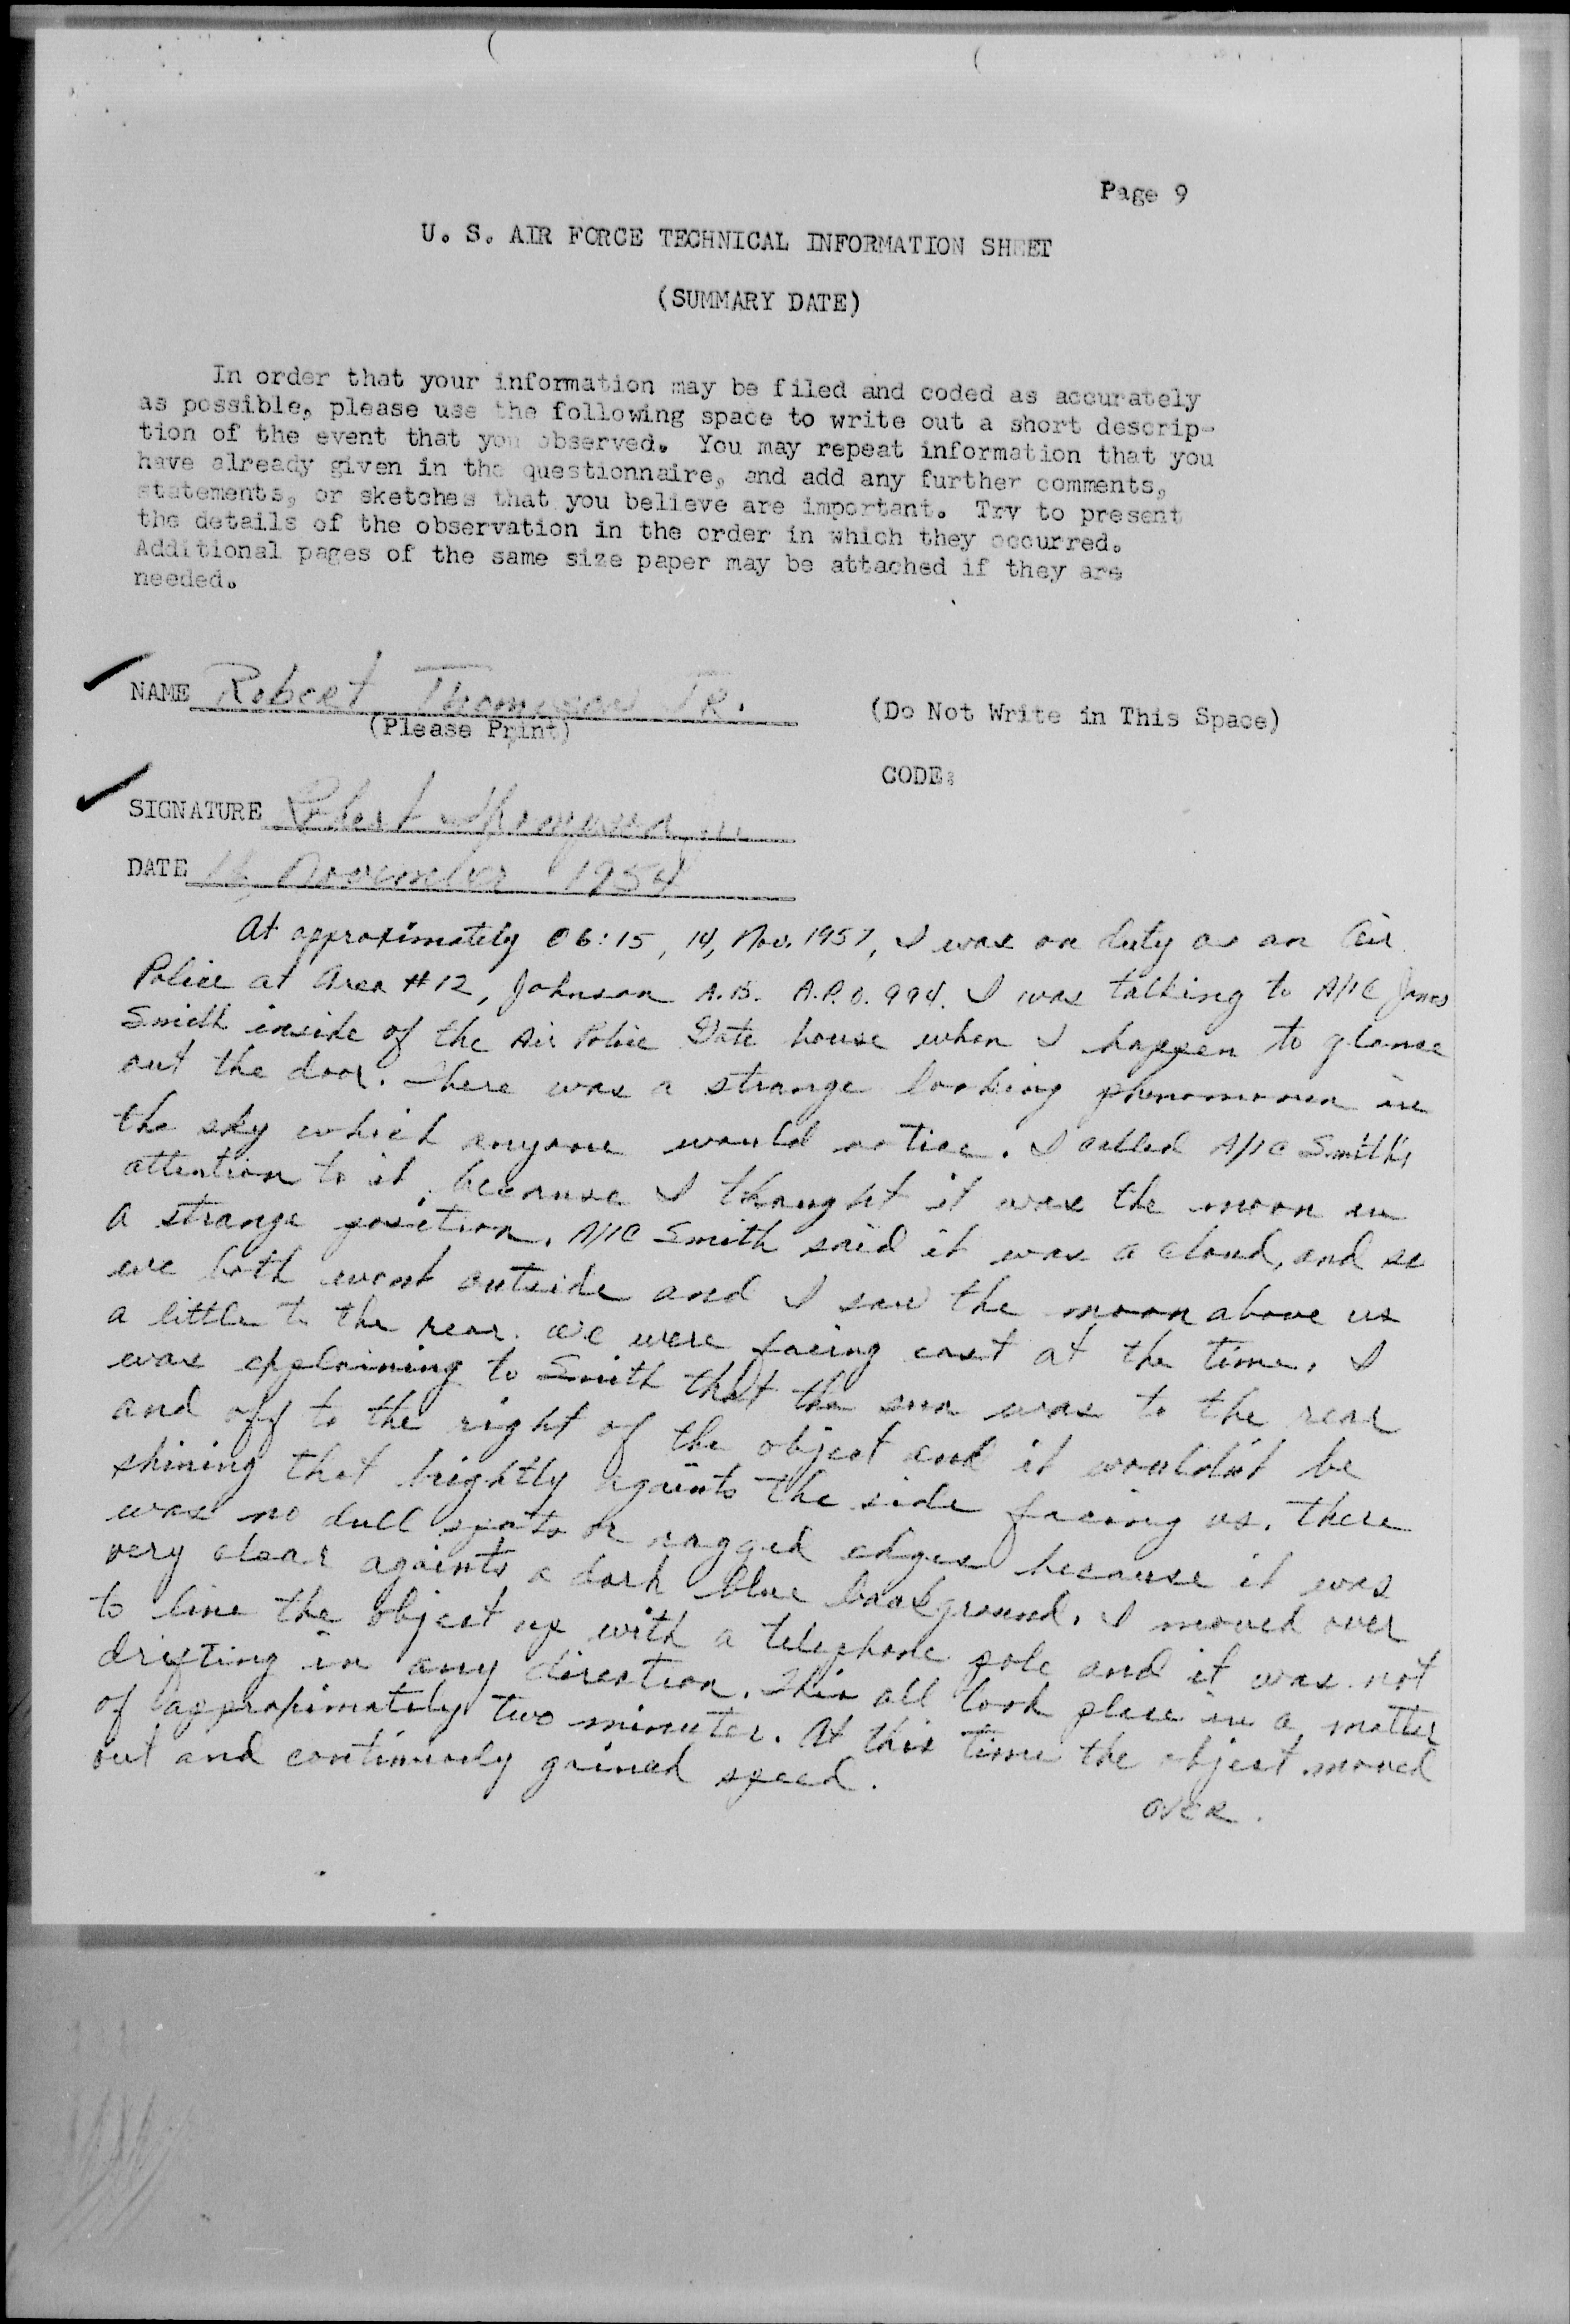 Page 9
U. S. AIR FORCE TECHNICAL INFORMATION SHEET
(SUMMARY DATE)
In order that your information may be filed and coded as accurately
as possible, please use the following space to write out a short descrip-
tion of the event that you observed. You may repeat information that you
have already given in the questionnaire, and add any further comments,
statements, or sketches that you believe are important. Try to present
the details of the observation in the order in which they occurred.
Additional pages of the same size paper may be attached if they are
needed.
NAME Robert Thompson JR.
(Please Print)
(Do Not Write in This Space)
CODE:
SIGNATURE Robert Thompson Jr
DATE November 195
At approximately 06:15, 14, Nov. 1957, I was on duty as an Air
Police at Area #12, Johnson A.B. A.P.O. 994. I was talking to A/1C James
Smith inside of the Air Police Gate house when I happen to glance
out the door. There was a strange looking phenomonen in
the sky which anyone would notice. I called A/1C Smith's
attention to it, because I thought it was the moon in
a strange position. A/1C Smith said it was a cloud, and so
we both went outside and I saw the moon above us
a little to the rear. We were facing east at the time. I
was explaining to Smith that the sun was to the rear
and off to the right of the object and it wouldn't be
shining that brightly againts the side facing us. There
was no dull spots or ragged edges because it was
very clear againts a dark blue background. I moved over
to line the object up with a telephone pole and it was not
drifting in any direction. This all took place in a matter
of approximately two minutes. At this time the object moved
out and continuously gained speed.
OVER.